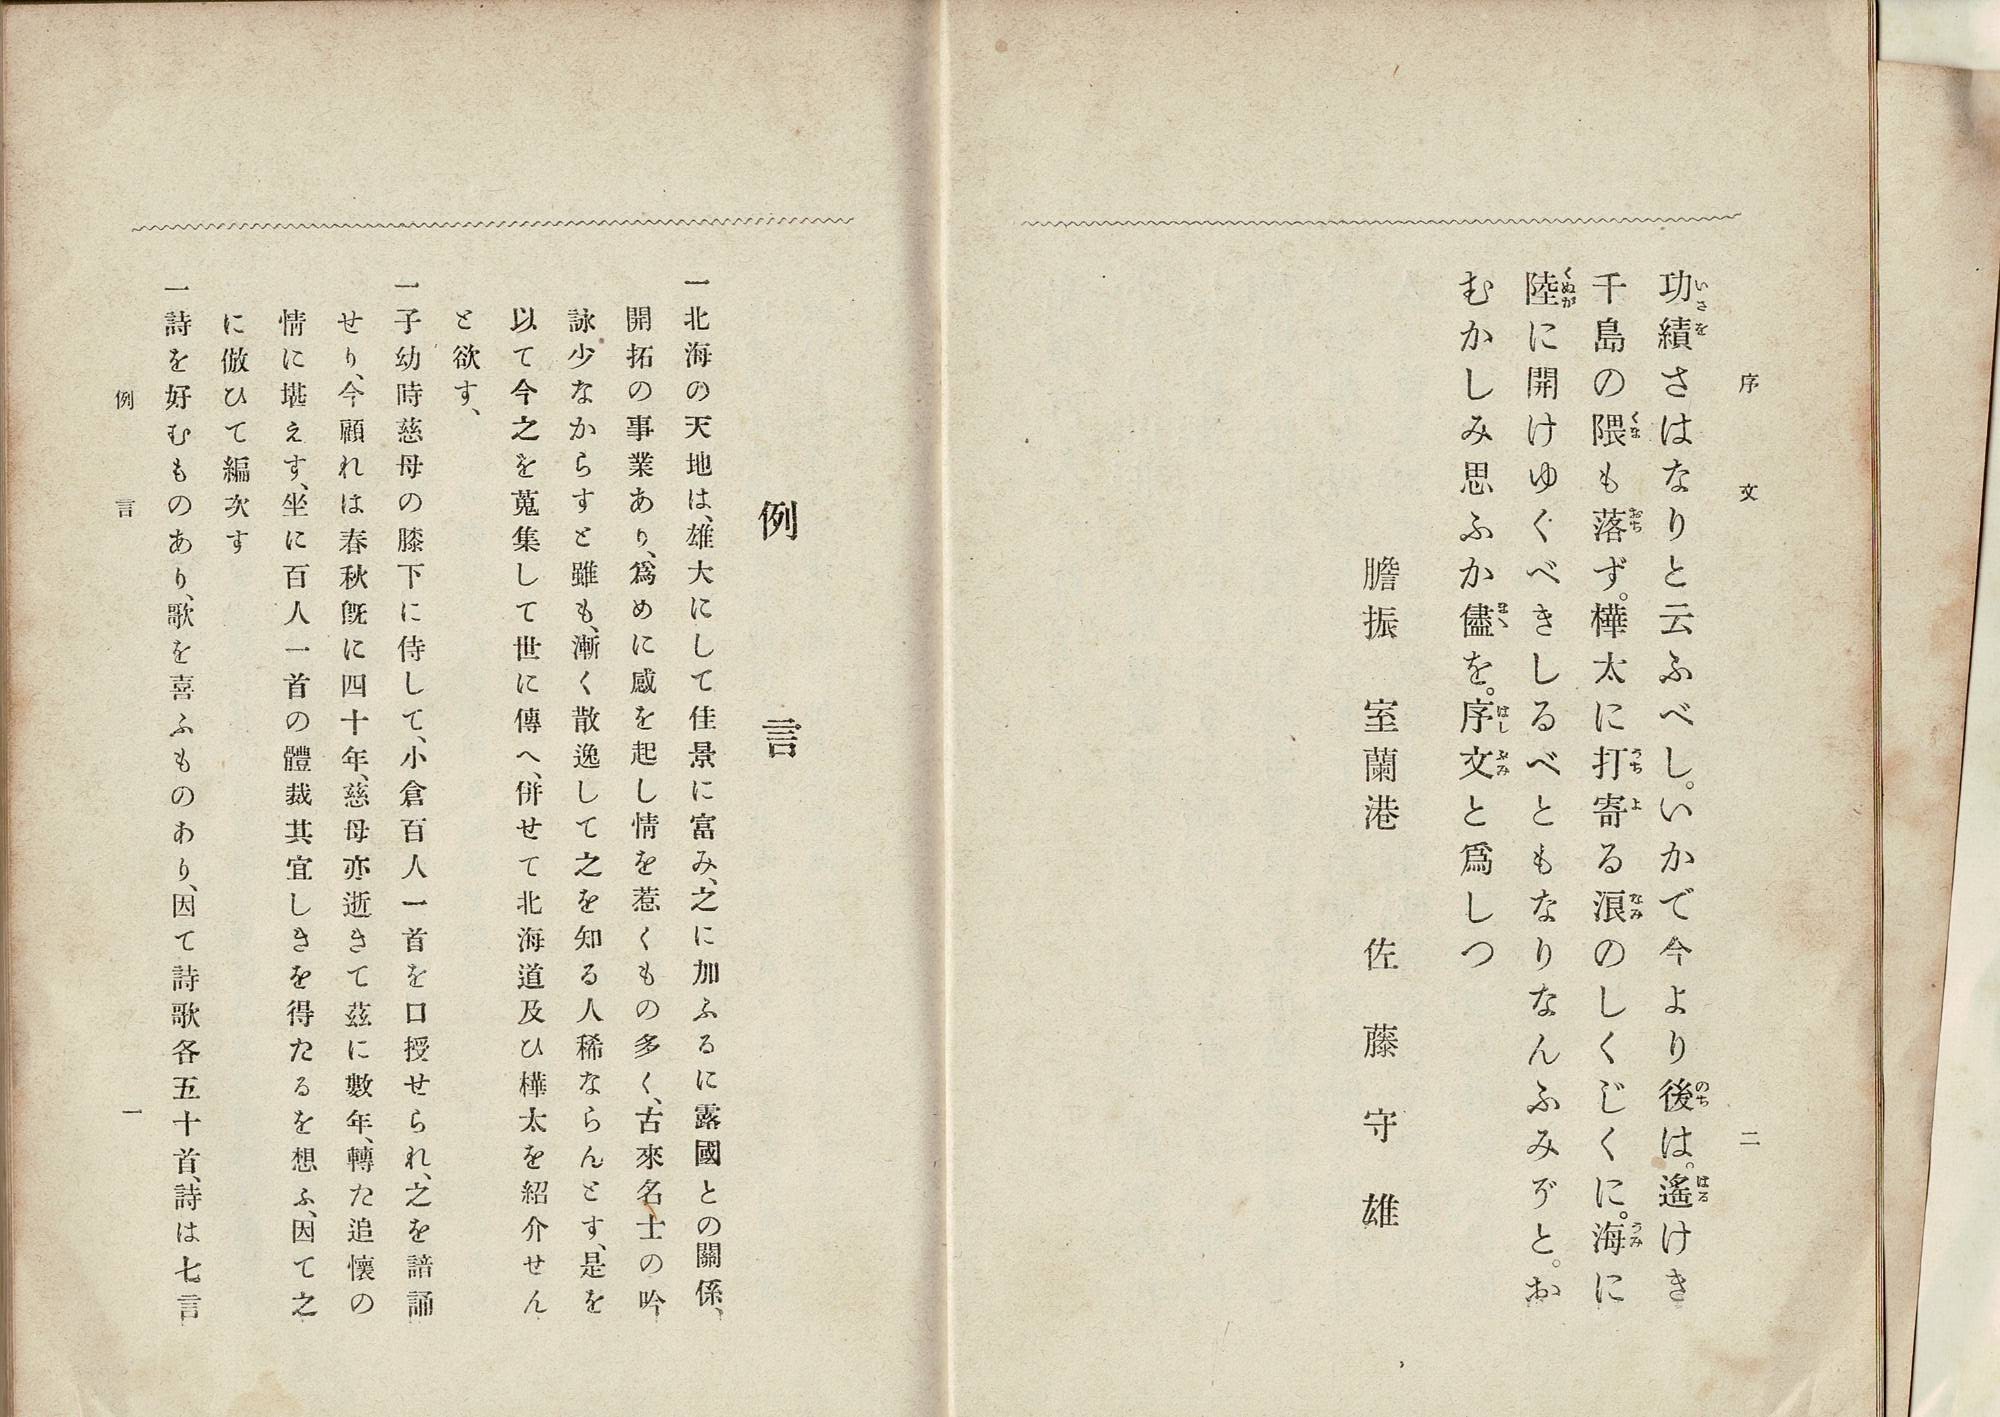 序文
二
功績さはなりと云ふべし。いかで今より後は。遙けき
いさを
のち
はる
千島の隈も落ず。樺太に打寄る浪のしくじくに。海に
くま
おち
うち
よ
なみ
うみ
陸に開けゆくべきしるべともなりなんふみぞと。お
くぬが
むかしみ思ふか儘を。序文と爲しつ
まゝ
はし
ふみ
膽振 室蘭港 佐藤守雄
例言
一北海の天地は、雄大にして佳景に富み、之に加ふるに露國との關係、
開拓の事業あり、爲めに感を起し情を惹くもの多く、古來名士の吟
詠少なからすと雖も、漸く散逸して之を知る人稀ならんとす、是を
以て今之を蒐集して世に傳へ、併せて北海道及ひ樺太を紹介せん
と欲す、
一子幼時慈母の膝下に侍して、小倉百人一首を口授せられ、之を諳誦
せり、今顧れは春秋旣に四十年、慈母亦逝きて茲に數年、轉た追懷の
情に堪えす、坐に百人一首の體裁其宜しきを得たるを想ふ、因て之
に倣ひて編次す
一詩を好むものあり、歌を喜ふものあり、因て詩歌各五十首、詩は七言
例言
一